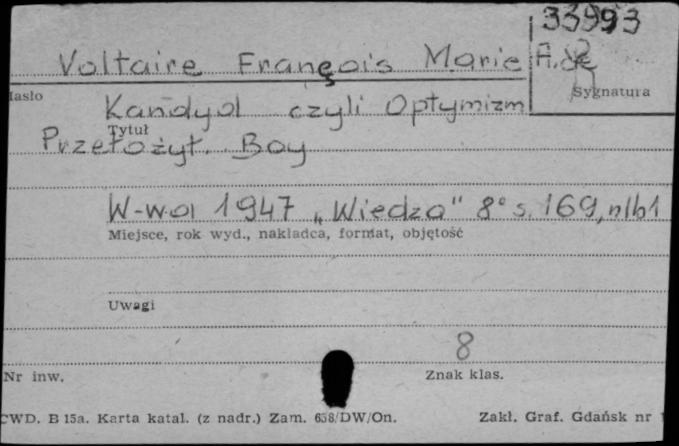 33993
Voltaire Franęois Marie A. de
Hasło
Sygnatura
Kandyd czyli Optymizm
Tytuł
Przełożył. Boy
W-wa 1947 „Wiedza" 8° s. 169, nlb1
Miejsce, rok wyd., nakładca, format, objętość
Uwagi
8
Nr inw.
Znak klas.
CWD. B 15a. Karta katal. (z nadr.) Zam. 658/DW/On.
Zakł. Graf. Gdańsk nr 1